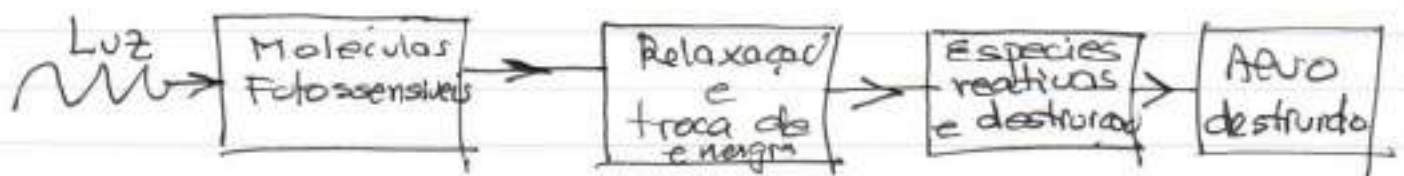 Luz
Moléculas
Fotossensíveis
Relaxação
e
troca de
energia
Espécies
reativas
e destruição
Alvo
destruído